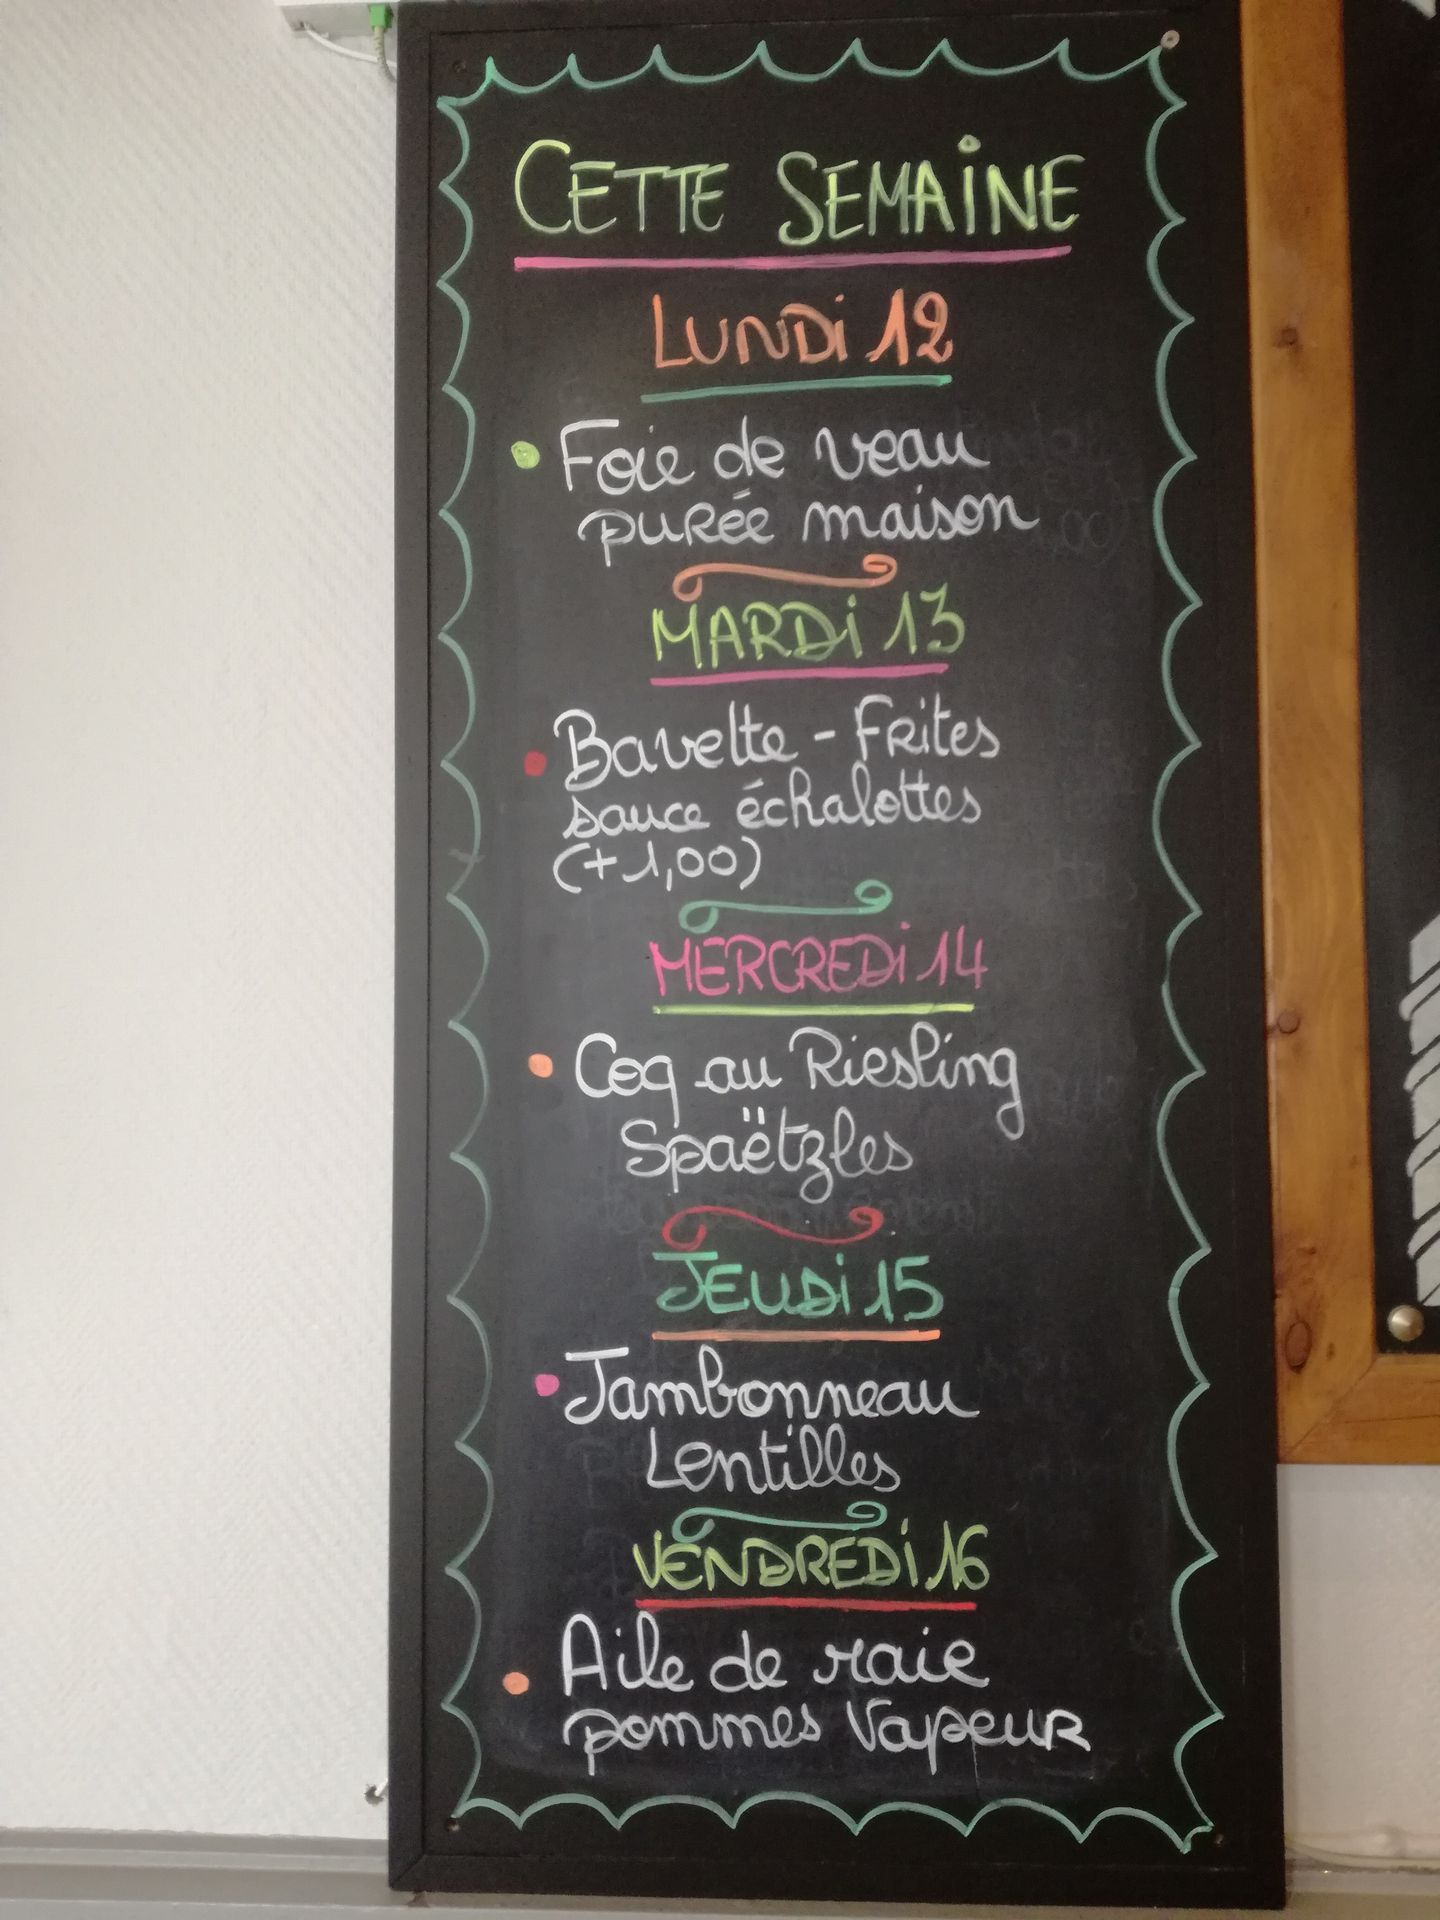 CETTE SEMAINE
LUNDI 12
Foie de veau
purée maison
MARDI 13
Bavette - Frites
sauce échalottes
(+1,00)
MERCREDI 14
Coq au Riesling
Spaëtzles
JEUDI 15
Jambonneau
Lentilles
VENDREDI 16
Aile de raie
pommes Vapeur